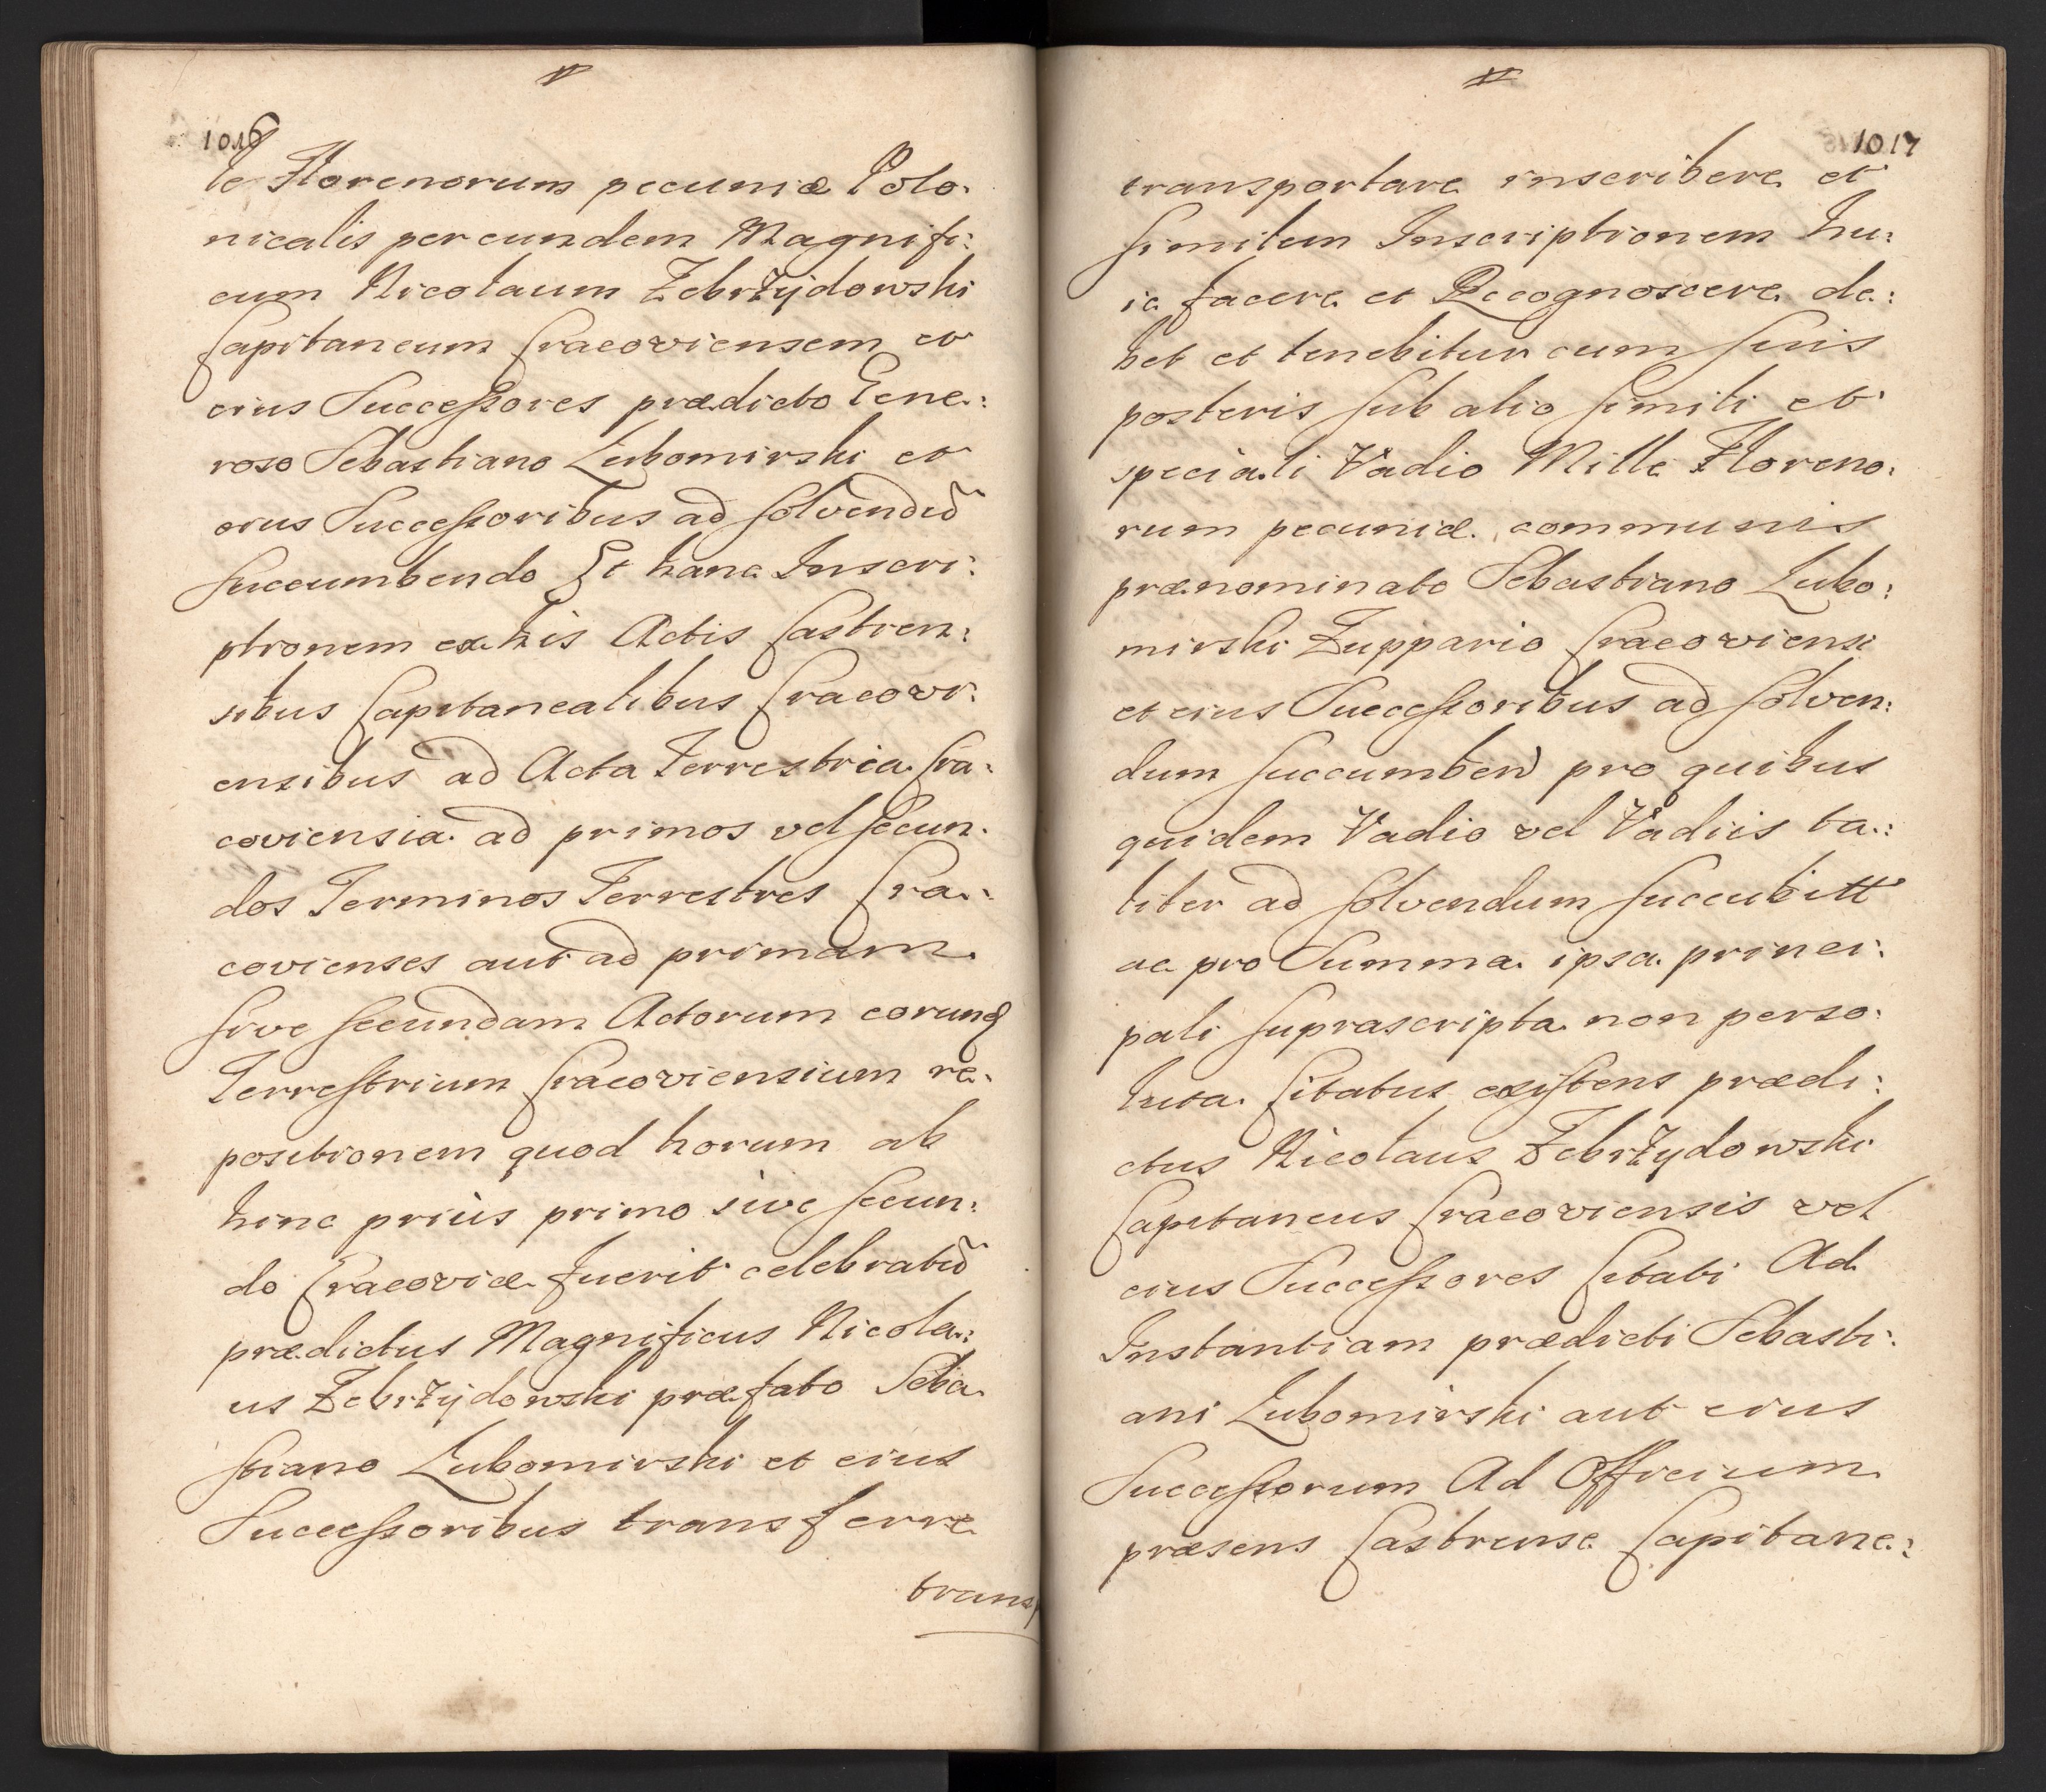 1016
le Florenorum pecuniæ Polo:
nicalis per eundem Magnifi:
cum Nicolaum Zebrżydowski
Capitaneum Cracoviensem et
eius Successores prædicto Gene:
roso Sebastiano Lubomirski et
eius Successoribus ad solvendũ
succumbendo Et hanc Inscri:
ptionem ex his Actis Castren:
sibus Capitanealibus Cracovi:
ensibus ad Acta Terrestria Cra:
coviensia ad primos vel secun:
dos Terminos Terrestres Cra:
covienses aut ad primam
sive secundam Actorum eorund
Terrestrium Cracoviensium re:
positionem quod horum ab
hinc priùs primo sive secun:
do Cracoviæ fuerit celebratũ
prædictus Magnificus Nicola:
us Zebrżydowski præfato Seba:
stiano Lubomirski et eius
Successoribus transferre
trans
1017
transportare inscribere et
similem Inscriptionem hu:
ic facere et Recognoscere de:
bet et tenebitur cum suis
posteris sub alio simili et
speciali Vadio Mille Floreno:
rum pecuniæ communis
prænominato Sebastiano Lubo:
mirski Zuppario Cracoviensi
et eius Successoribus ad solven:
dum succumben pro quibus
quidem Vadio vel Vadiis ta:
liter ad solvendum succubitt
ac pro Summa ipsa princi:
pali suprascripta non perso:
luta Citatus existens prædi:
ctus Nicolaus Zebrżydowski
Capitaneus Cracoviensis vel
eius Successores Citati Ad
Instantiam prædicti Sebasti:
ani Lubomirski aut eius
Successorum Ad Officium
præsens Castrense Capitane: